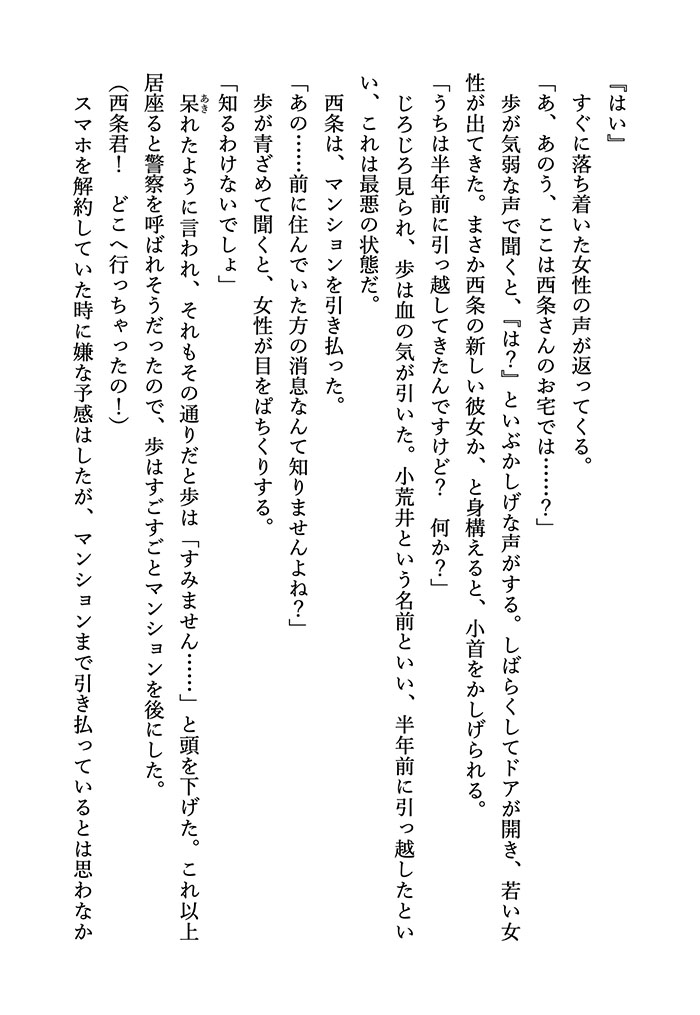 『はい』
　すぐに落ち着いた女性の声が返ってくる。
「あ、あのう、ここは西条さんのお宅では……？」
　歩が気弱な声で聞くと、『は？』といぶかしげな声がする。しばらくしてドアが開き、若い女
性が出てきた。まさか西条の新しい彼女か、と身構えると、小首をかしげられる。
「うちは半年前に引っ越してきたんですけど？　何か？」
　じろじろ見られ、歩は血の気が引いた。小荒井という名前といい、半年前に引っ越したとい
い、これは最悪の状態だ。
　西条は、マンションを引き払った。
「あの……前に住んでいた方の消息なんて知りませんよね？」
　歩が青ざめて聞くと、女性が目をぱちくりする。
「知るわけないでしょ」
　呆あきれたように言われ、それもその通りだと歩は「すみません……」と頭を下げた。これ以上
居座ると警察を呼ばれそうだったので、歩はすごすごとマンションを後にした。
（西条君！　どこへ行っちゃったの！）
　スマホを解約していた時に嫌な予感はしたが、マンションまで引き払っているとは思わなか